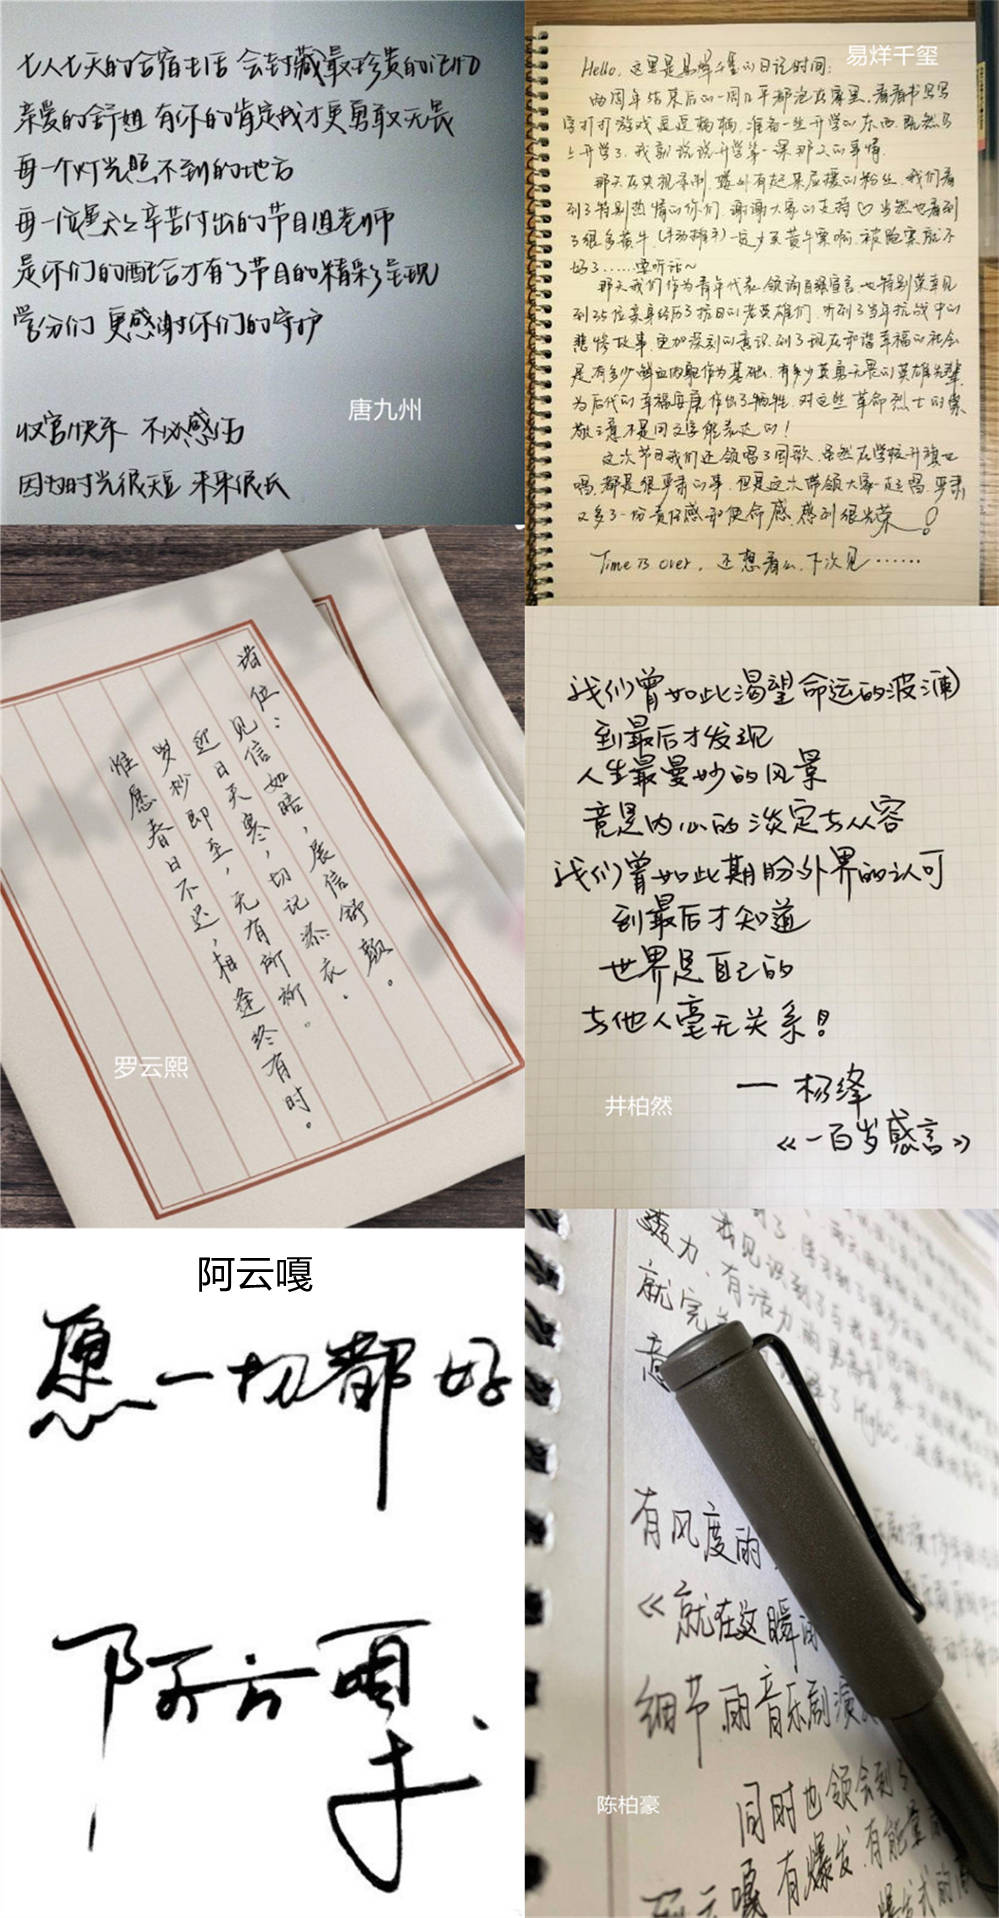 七人七天的合宿生活 会封藏最珍贵的记忆
亲爱的舒姐 有你的肯定我才更勇敢无畏
每一个灯光照不到的地方
每一位夏天辛苦付出的节目组老师
是你们的配合才有了节目的精彩呈现
学分们 更感谢你们的守护
唐九州
收官快乐 不必感伤
因为时光很短 未来很长
易烊千玺
Hello,这里是易烊千玺的日记时间:
两周年结束后的一周几乎都泡在家里,看看书写写
字打打游戏逗逗楠楠,准备一些开学的东西,既然马
上开学了,我就说说开学第一课那天的事情.
那天在央视录制,场外有赶来应援的粉丝,我们看
到了特别热情的你们,谢谢大家的支持♡当然也看到
了很多黄牛,(手动推手)一定少买黄牛票啊,被骗票就不
好了……要听话~
那天我们作为青年代表,领诵自强宣言,也特别荣幸见
到35位亲身经历了抗日的老英雄们,听到了当年抗战中的
悲惨故事,更加深刻的意识到了现在和谐幸福的社会
是有多少鲜血肉躯作为基础,有多少英勇无畏的英雄先辈,
为后代的幸福安康作出了牺牲,对这些革命烈士的崇
敬之意不是用文字能表达的!
这次节目我们还领唱了国歌,虽然在学校升旗也
唱,都是很严肃的事,但是这次带领大家一起唱,严肃
又多了一份责任感和使命感,感到很光荣!
Time is over,还想看么,下次见……
诸位:
见信如晤,展信舒颜。
近日天寒,切记添衣.
岁杪即至,无有所御。
惟愿春日不迟,相逢终有时。
罗云熙
我们曾如此渴望命运的波澜
到最后才发现
人生最曼妙的风景
竟是内心的淡定与从容
我们曾如此期盼外界的认可
到最后才知道
世界是自己的
与他人毫无关系!
— 杨绛
《一百岁感言》
井柏然
阿云嘎
愿一切都好
阿云嘎
力、有活力的男高音
就完美
High C
有风度的
《就在这瞬间
细节 雨音乐剧演
同时也领会到了
阿云嘎 有爆发、有能量
爆发式的
陈柏豪